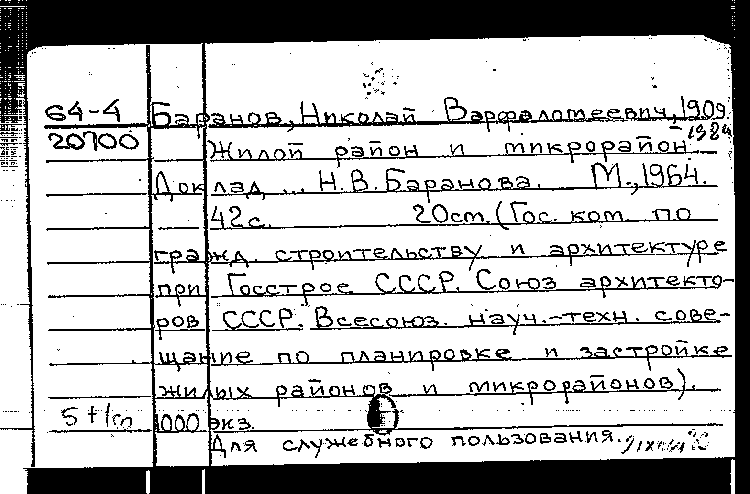 64-4 Баранов, Николай Варфоломеевич, 1909.
-1989
20700 Жилой район и микрорайон.
Доклад ... Н.В. Баранова. М., 1964.
42с. 20см. (Гос. ком. по
гражд. строительству и архитектуре
при Госстрое СССР. Союз архитекто-
ров СССР. Всесоюз. науч.-техн. сове-
щание по планировке и застройке
жилых районов и микрорайонов).
1000 экз.
Для служебного пользования.